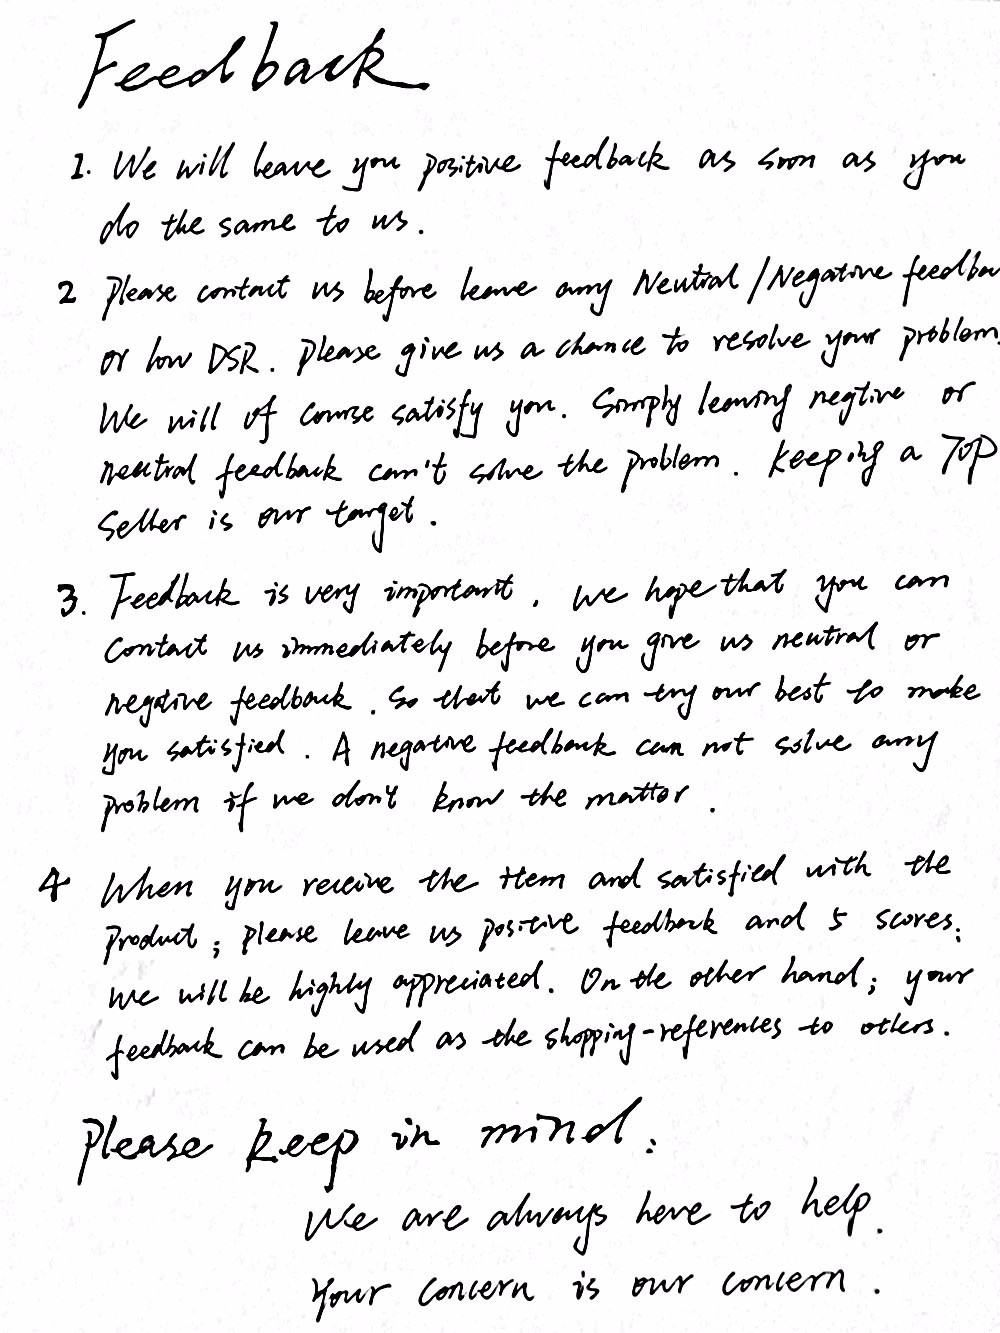 Feedback
1. We will leave you positive feedback as soon as you
do the same to us.
2 Please contact us before leave any Neutral/Negative feedbac
or low DSR. Please give us a chance to resolve your problem.
We will of course satisfy you. Simply leaving negtive or
neutral feedback can't solve the problem. Keeping a TOP
Seller is our target.
3. Feedback is very important. We hope that you can
contact us immediately before you give us neutral or
negative feedback. So that we can try our best to make
you satisfied. A negative feedback can not solve any
problem if we don't know the matter.
4 When you receive the item and satisfied with the
product; please leave us positive feedback and 5 scores;
We will be highly appreciated. On the other hand; your
feedback can be used as the shopping-references to others.
Please keep in mind:
We are always here to help.
Your concern is our concern.